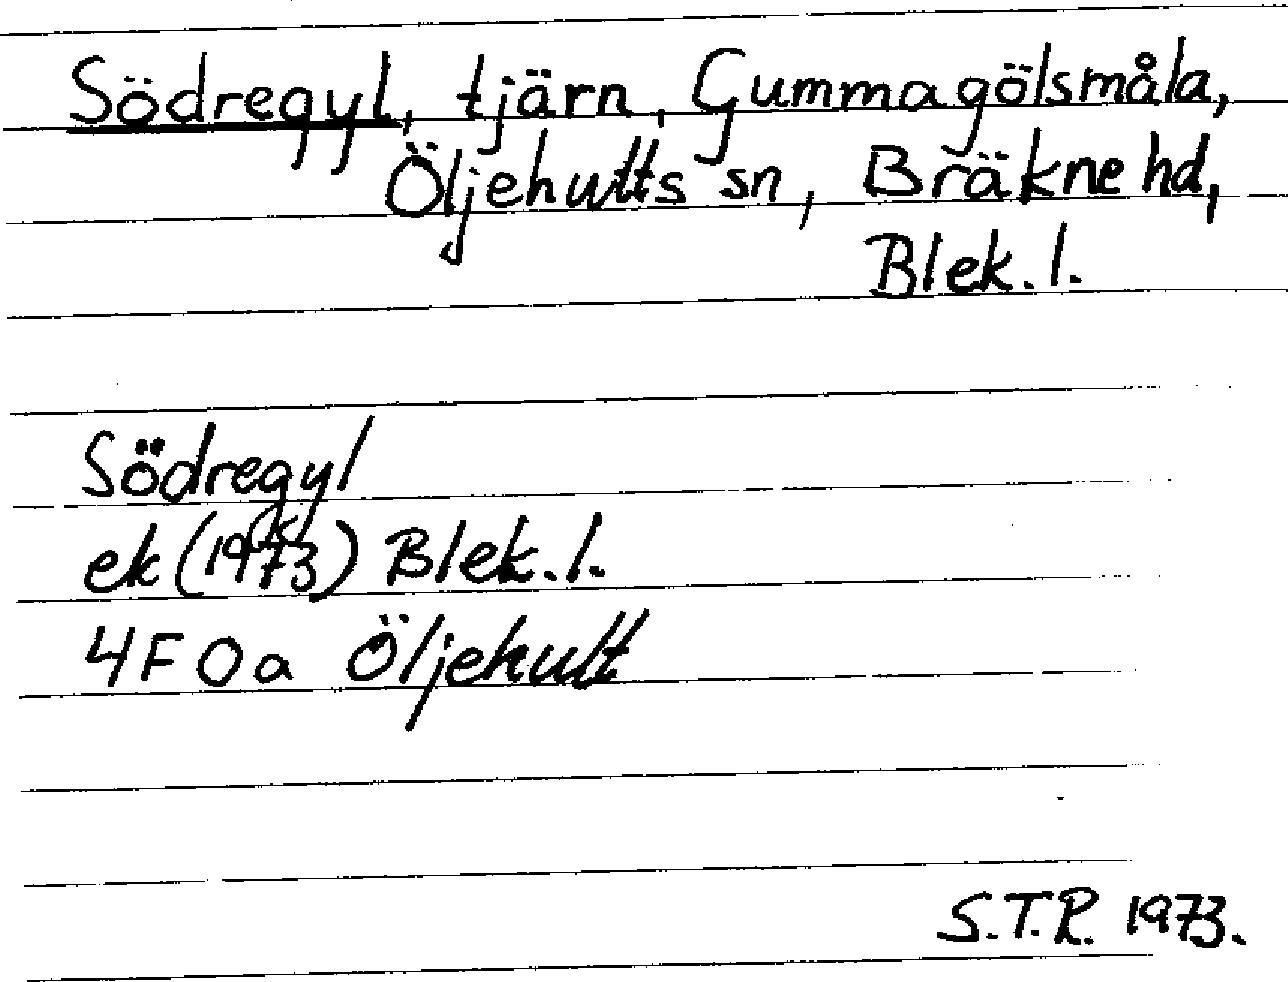 Södregyl, tjärn, Gummagölsmåla,
Öljehults sn, Bräkne hd,
Blek. l.
Södregyl
ek (1973) Blek. l.
4F 0a Öljehult
S.T.R. 1973.